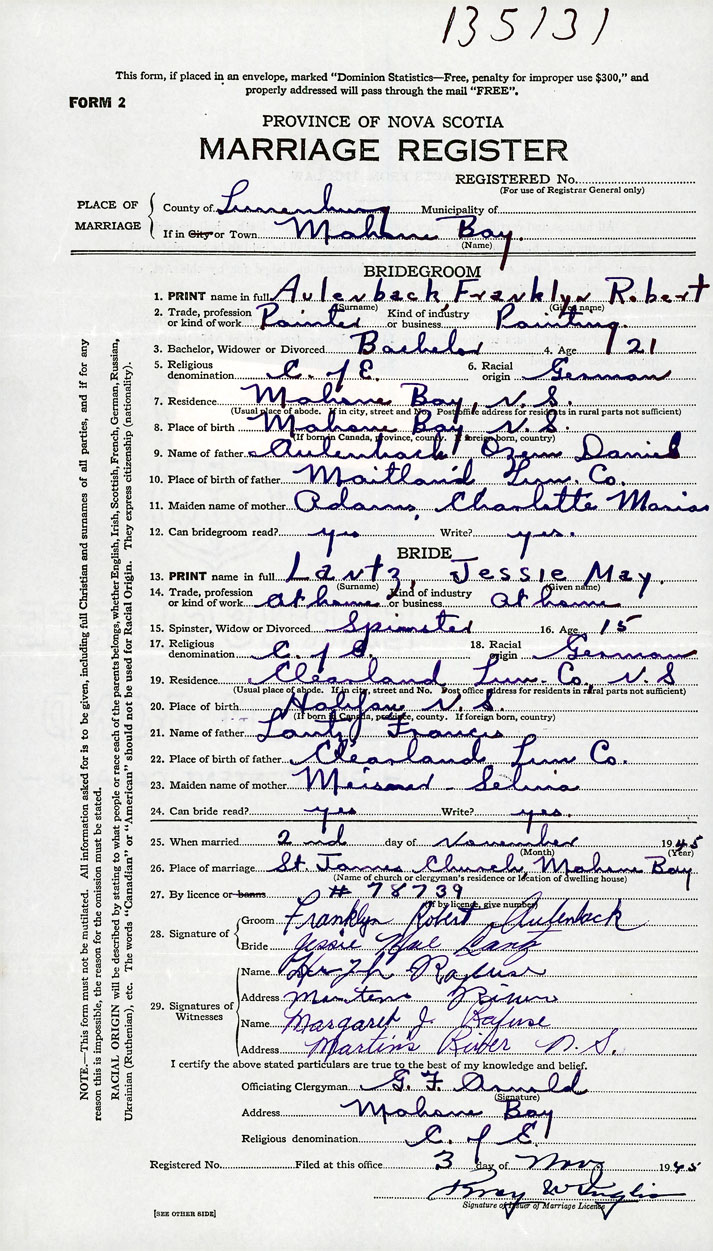 135131
This form, if placed in an envelope, marked "Dominion Statistics—Free, penalty for improper use $300," and
properly addressed will pass through the mail "FREE".
FORM 2
PROVINCE OF NOVA SCOTIA
MARRIAGE REGISTER
REGISTERED No.
(For use of Registrar General only)
PLACE OF MARRIAGE
County of Lunenburg Municipality of
If in City or Town Mahone Bay.
(Name)
BRIDEGROOM
1. PRINT name in full Aulenback, Franklyn Robert
(Surname) (Given name)
2. Trade, profession or kind of work Painter Kind of industry or business Painting.
3. Bachelor, Widower or Divorced Bachelor 4. Age 21
5. Religious denomination C. of E. 6. Racial origin German
7. Residence Mahone Bay, N.S.
(Usual place of abode. If in city, street and No. Post office address for residents in rural parts not sufficient)
8. Place of birth Mahone Bay N.S.
(If born in Canada, province, county. If foreign born, country)
9. Name of father Aulenback Ozem Daniel
10. Place of birth of father Maitland Lun. Co.
11. Maiden name of mother Adams, Charlotte Maria
12. Can bridegroom read? yes Write? yes.
BRIDE
13. PRINT name in full Lantz, Jessie May.
(Surname) (Given name)
14. Trade, profession or kind of work at home Kind of industry or business at home
15. Spinster, Widow or Divorced Spinster 16. Age 15
17. Religious denomination C. of E. 18. Racial origin German
19. Residence Clearland Lun. Co. N.S
(Usual place of abode. If in city, street and No. Post office address for residents in rural parts not sufficient)
20. Place of birth Halifax N.S.
(If born in Canada, province, county. If foreign born, country)
21. Name of father Lantz Francis
22. Place of birth of father Clearland Lun Co.
23. Maiden name of mother Meisner Selvia
24. Can bride read? yes Write? yes.
25. When married 2nd day of November 1945
(Month) (Year)
26. Place of marriage St. James Church, Mahone Bay
(Name of church or clergyman's residence or location of dwelling house)
27. By licence or banns # 78739
(If by licence, give number)
28. Signature of
Groom Franklyn Robert Aulenback
Bride Jessie Mae Lantz
29. Signatures of Witnesses
Name Rafuse
Address Martins River
Name Margaret J. Rafuse
Address Martin's River N.S.
I certify the above stated particulars are true to the best of my knowledge and belief.
Officiating Clergyman G. F. Arnold
(Signature)
Address Mahone Bay
Religious denomination C. of E.
Registered No. Filed at this office 3 day of Nov 1945
Signature of Issuer of Marriage License
[SEE OTHER SIDE]
NOTE.—This form must not be mutilated. All information asked for is to be given, including full Christian and surnames of all parties, and if for any
reason this is impossible, the reason for the omission must be stated.
RACIAL ORIGIN will be described by stating to what people or race each of the parents belongs, whether English, Irish, Scottish, French, German, Russian,
Ukrainian (Ruthenian), etc. The words "Canadian" or "American" should not be used for Racial Origin. They express citizenship (nationality).